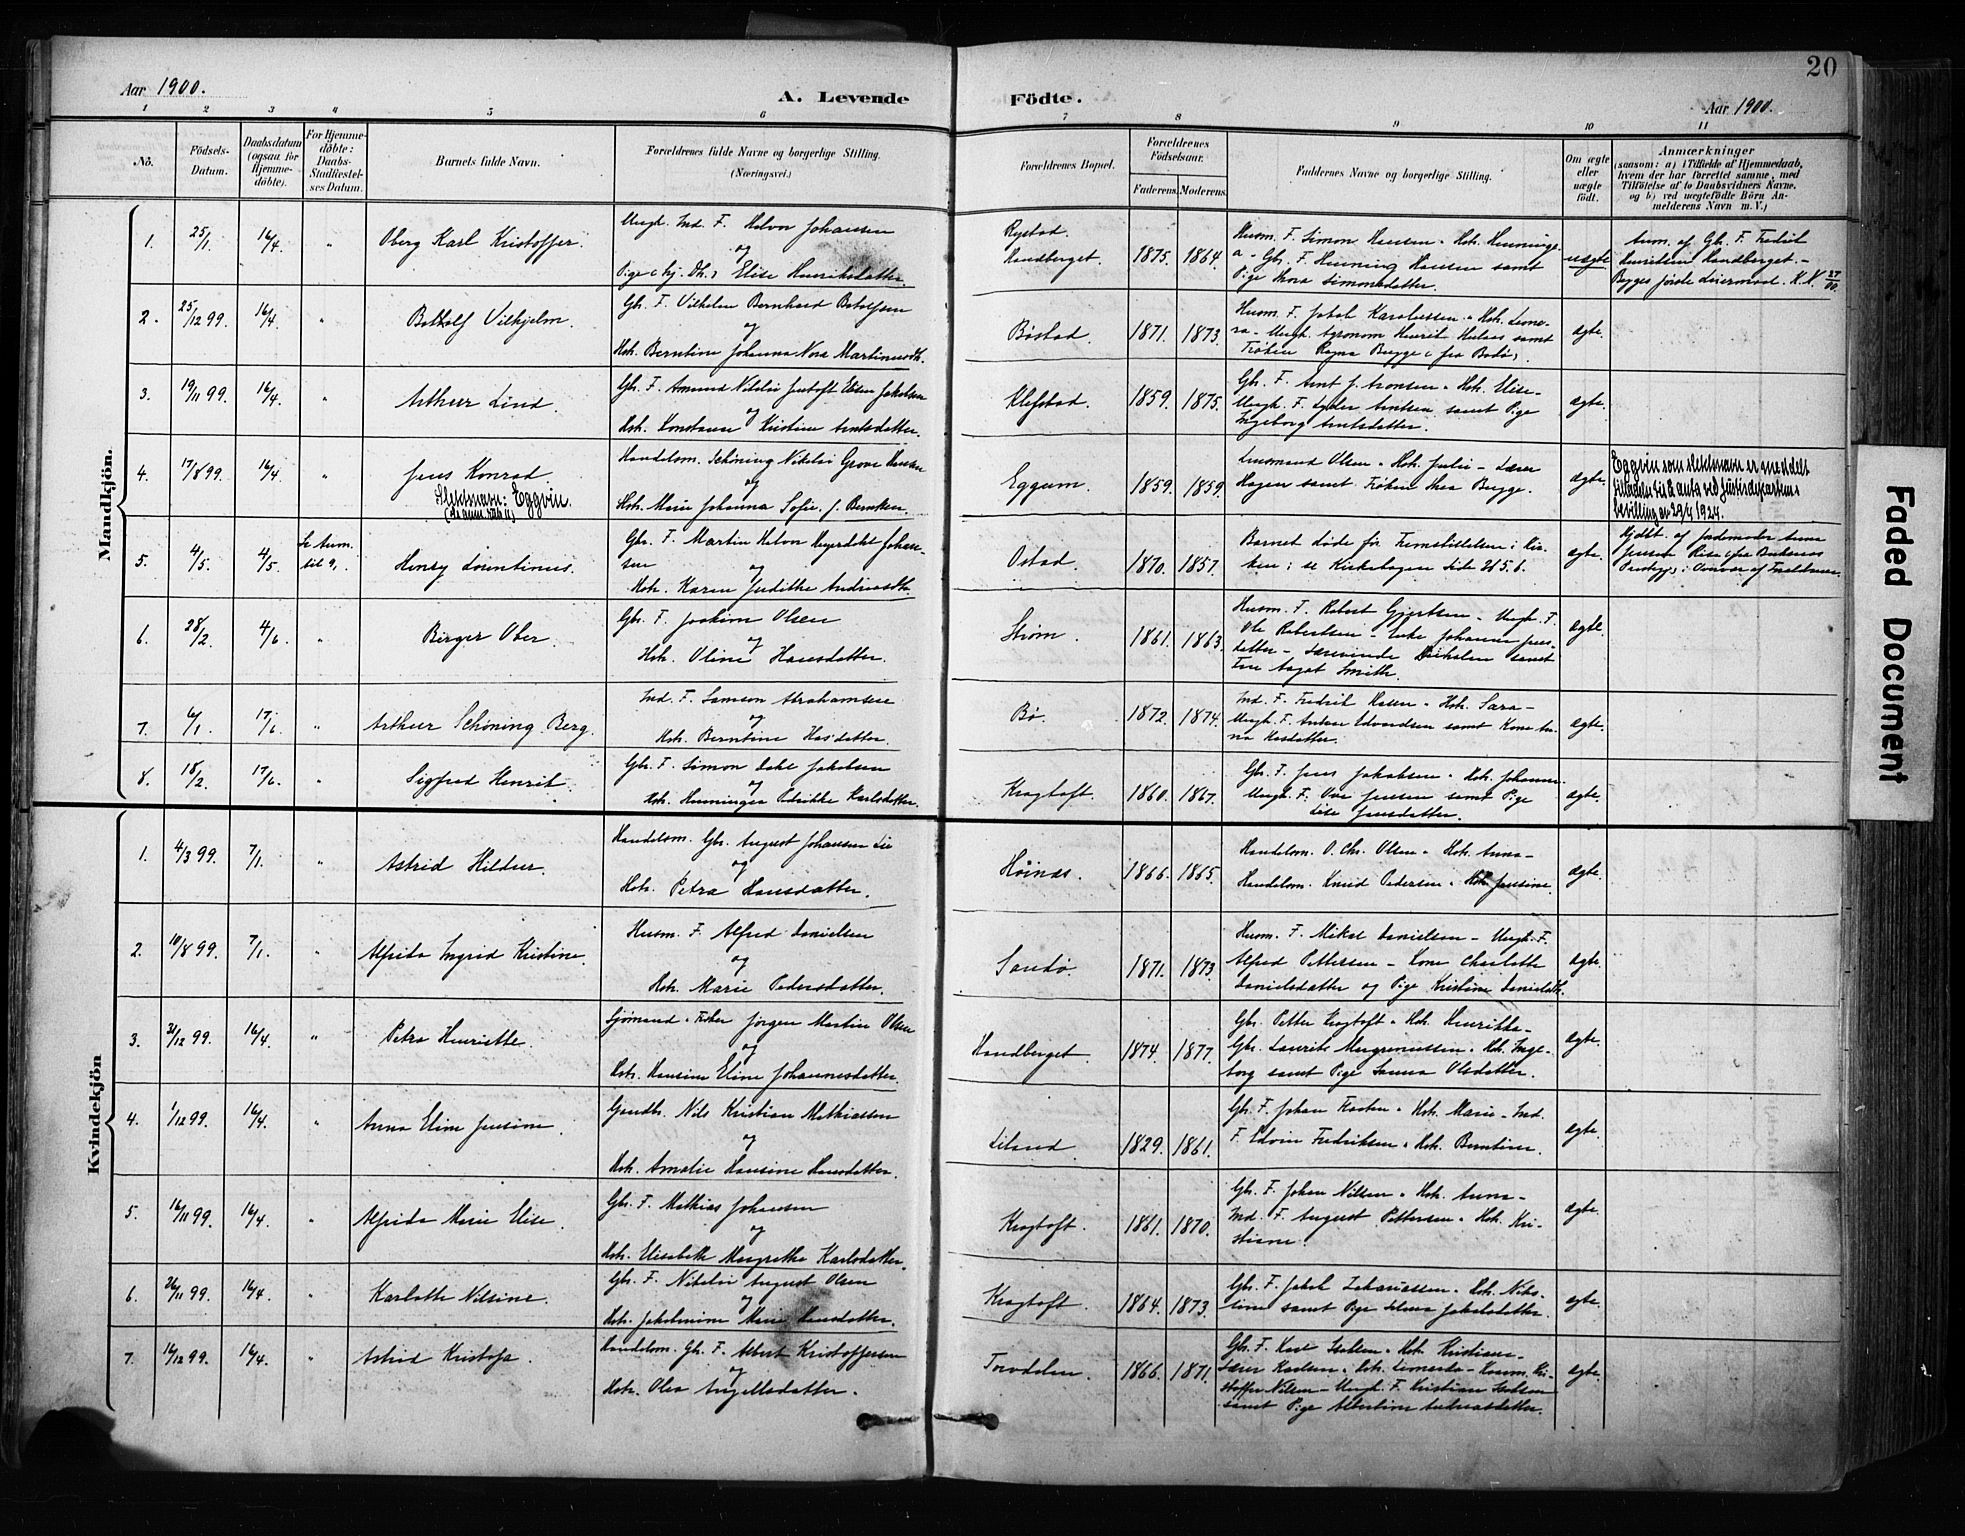 20
Aar 1900.
A. Levende
Födte.
Aar 1900.
1 2 3 4 5 6 7 8 9 10 11
No.
Födsels-
Datum.
Daabsdatum
(ogsaa for
Hjemme-
döbte).
For Hjemme-
döbte:
Daabs-
Stadfestel-
ses Datum.
Barnets fulde Navn.
Forældrenes fulde Navne og borgerlige Stilling.
(Næringsvei.)
Forældrenes Bopæl.
Forældrenes
Födselsaar.
Faderens. Moderens.
Faddernes Navne og borgerlige Stilling.
Om ægte
eller
uægte
födt.
Anmærkninger
(saasom: a) i Tilfælde af Hjemmedaab,
hvem der har forrettet samme, med
Tilföielse af to Daabsvidners Navne,
og b) ved uægtefödte Börn An-
melderens Navn m. V.)
Mandkjön.
1. 25/1. 16/4. " Oberg Karl Kristoffer.
Ungk. Ind. F. Halvor Johansen
og
Pige (hj. Dh.) Elise Henriksdatter
Rystad.
Handberget. 1875. 1864.
Husm. F. Simon Hansen - Hstr. Henning-
a - Gbr. F. Henning Hansen samt
Pige Thora Simonsdatter.
uægte
Anm. af Gb. F. Fredrik
Henriksen Handberget.-
2. 25/12 99. 16/4. " Bottolf Vilhjelm.
Gb. F. Vilhelm Bernhard Botolfsen
og
Hstr. Berntine Johanna Nora Martinusdtr.
Böstad. 1871. 1873.
Husm. F. Jakob Karolussen - Hstr. Leone-
ra - Ungk. Agronom Henrik Hulaas samt
Fröken Ragna Bugge (fra Bodö).
ægte.
3. 19/11 99. 16/4. " Arthur Lind.
Gb. F. Amund Nikolai Justoft Elisen Jakobsen
og
Hstr. Konstanse Kristine Arntsdatter.
Klefstad. 1859. 1875.
Gb. F. Arnt J. Aronsen - Hstr. Elise-
Ungk. F. Lyder Arntsen samt Pige
Ingeborg Arntsdatter.
ægte.
4. 17/8 99. 16/4. " Jens Konrad.
Slektsnavn: Eggvin.
(Se anm. rub. 11)
Handelsm. Schöning Nikolai Grove Hansen
og
Hstr. Marie Johanna Sofie, f. Berntsen.
Eggum. 1859. 1859.
Lensmand Olsen - Hstr. Julie - Lærer
Hagen samt Fröken Thea Bugge.
ægte.
Eggvin som slektsnavn er meddelt
tilladelse til å anta ved Justisdepartem.
bevilling av 29/4 1924.
5. 4/5. 4/5. Se Anm.
til 9. Henry Lorentinus.
Gbr. F. Martin Halvor Meyerdahl Johan-
sen og
Hstr. Karen Judithe Andreasdtr.
Ostad. 1870. 1857.
Barnet döde för Fremstillelsen i Kir-
ken; se Kirkebogen Side 215.6.
ægte.
Hjdbt. af Jordmoder Anna
6. 28/2. 4/6. " Birger Ober.
Gbr. F. Joakim Olsen
og
Hstr. Oline Hansdatter.
Ström. 1861. 1863.
Husm. F. Robert Gjertsen - Ungk. F.
Ole Robertsen - Enke Johanne Jens-
datter - Lærerinde Michelsen samt
Frue Aagot Smith.
ægte.
7. 6/1. 17/6. " Arthur Schöning Berg.
Ind. F. Samson Abrahamsen
og
Hstr. Berntine Hasdatter.
Bö. 1872. 1874.
Ind. F. Fredrik Hasen - Hstr. Sara-
Ungk. F. Anton Edvardsen samt Kone An-
na Hasdatter.
ægte.
8. 18/2. 17/6. " Sigfred Henrik.
Gbr. F. Simon Dahl Jakobsen
og
Hstr. Henningea Pedrikke Karlsdatter.
Kragtoft. 1860. 1867.
Gb. F. Jens Jakobsen - Hstr. Johanna-
Ungk. F. Ove Jensen samt Pige
Lise Jensdatter.
ægte.
Kvindekjön
1. 4/3 99. 7/1. " Astrid Hildur.
Handelsm. Gbr. August Johansen Lie
og
Hstr. Petra Hansdatter.
Höinæs. 1866. 1865.
Handelsm. O. Chr. Olsen - Hstr. Anna-
Handelsm. Knud Pedersen - Hstr. Jensine.
ægte.
2. 10/8 99. 7/1. " Alfrida Ingrid Kristine.
Husm. F. Alfred Danielsen
og
Hstr. Marie Pedersdatter.
Sandö. 1871. 1873.
Husm. F. Mikal Danielsen - Ungk. F.
Alfred Pettersen - Kone Charlotte
Danielsdatter og Pige Kristine Danielsdtr.
ægte.
3. 31/12 99. 16/4. " Petra Henriette.
Sjömand - Fisker Jörgen Martin Olsen
og
Hstr. Hansine Eline Johannesdatter.
Handberget. 1874. 1877.
Gbr. Petter Kragtoft - Hstr. Henrikka-
Gbr. Laurits Mugrenussen - Hstr. Inge-
borg samt Pige Sanna Olsdatter.
ægte.
4. 1/12 99. 16/4. " Anna Eline Jensine.
Gaardbr. Nils Kristian Mathiassen
og
Hstr. Amalie Hansine Hansdatter.
Liland. 1829. 1861.
Gb. F. Johan Hasten - Hstr. Marie - Ind.
F. Edvin Fredriksen - Hstr. Berntine.
ægte.
5. 16/11 99. 16/4. " Alfrida Marie Elise.
Gbr. F. Mathias Johansen
og
Hstr. Elisabeth Margrethe Karlsdatter.
Kragtoft. 1861. 1870.
Gb. F. Johan Nilsen - Hstr. Anna-
Ind. F. August Pettersen - Hstr. Kri-
stiane.
ægte.
6. 26/11 99. 16/4. " Karlotte Nilsine.
Gbr. F. Nikolai August Olsen
og
Hstr. Jakobmine Marie Hansdatter.
Kragtoft. 1864. 1873.
Gb. F. Jakob Zakariassen - Hstr. Nils-
sine samt Pige Selma Jakobsdatter.
ægte.
7. 16/12 99. 16/4. " Astrid Kristofa.
Handelsm. Gb. F. Albert Kristoffersen
og
Hstr. Olea Angellsdatter.
Torvdalen. 1866. 1871.
Gb. F. Karl Isaksen - Hstr. Kristiane-
Lærer Karlsen - Hstr. Leonarda - Husm. Kri-
stoffer Nilsen - Ungk. F. Kristian Isaksen
samt Pige Albertine Andreasdatter.
ægte.
Faded Document